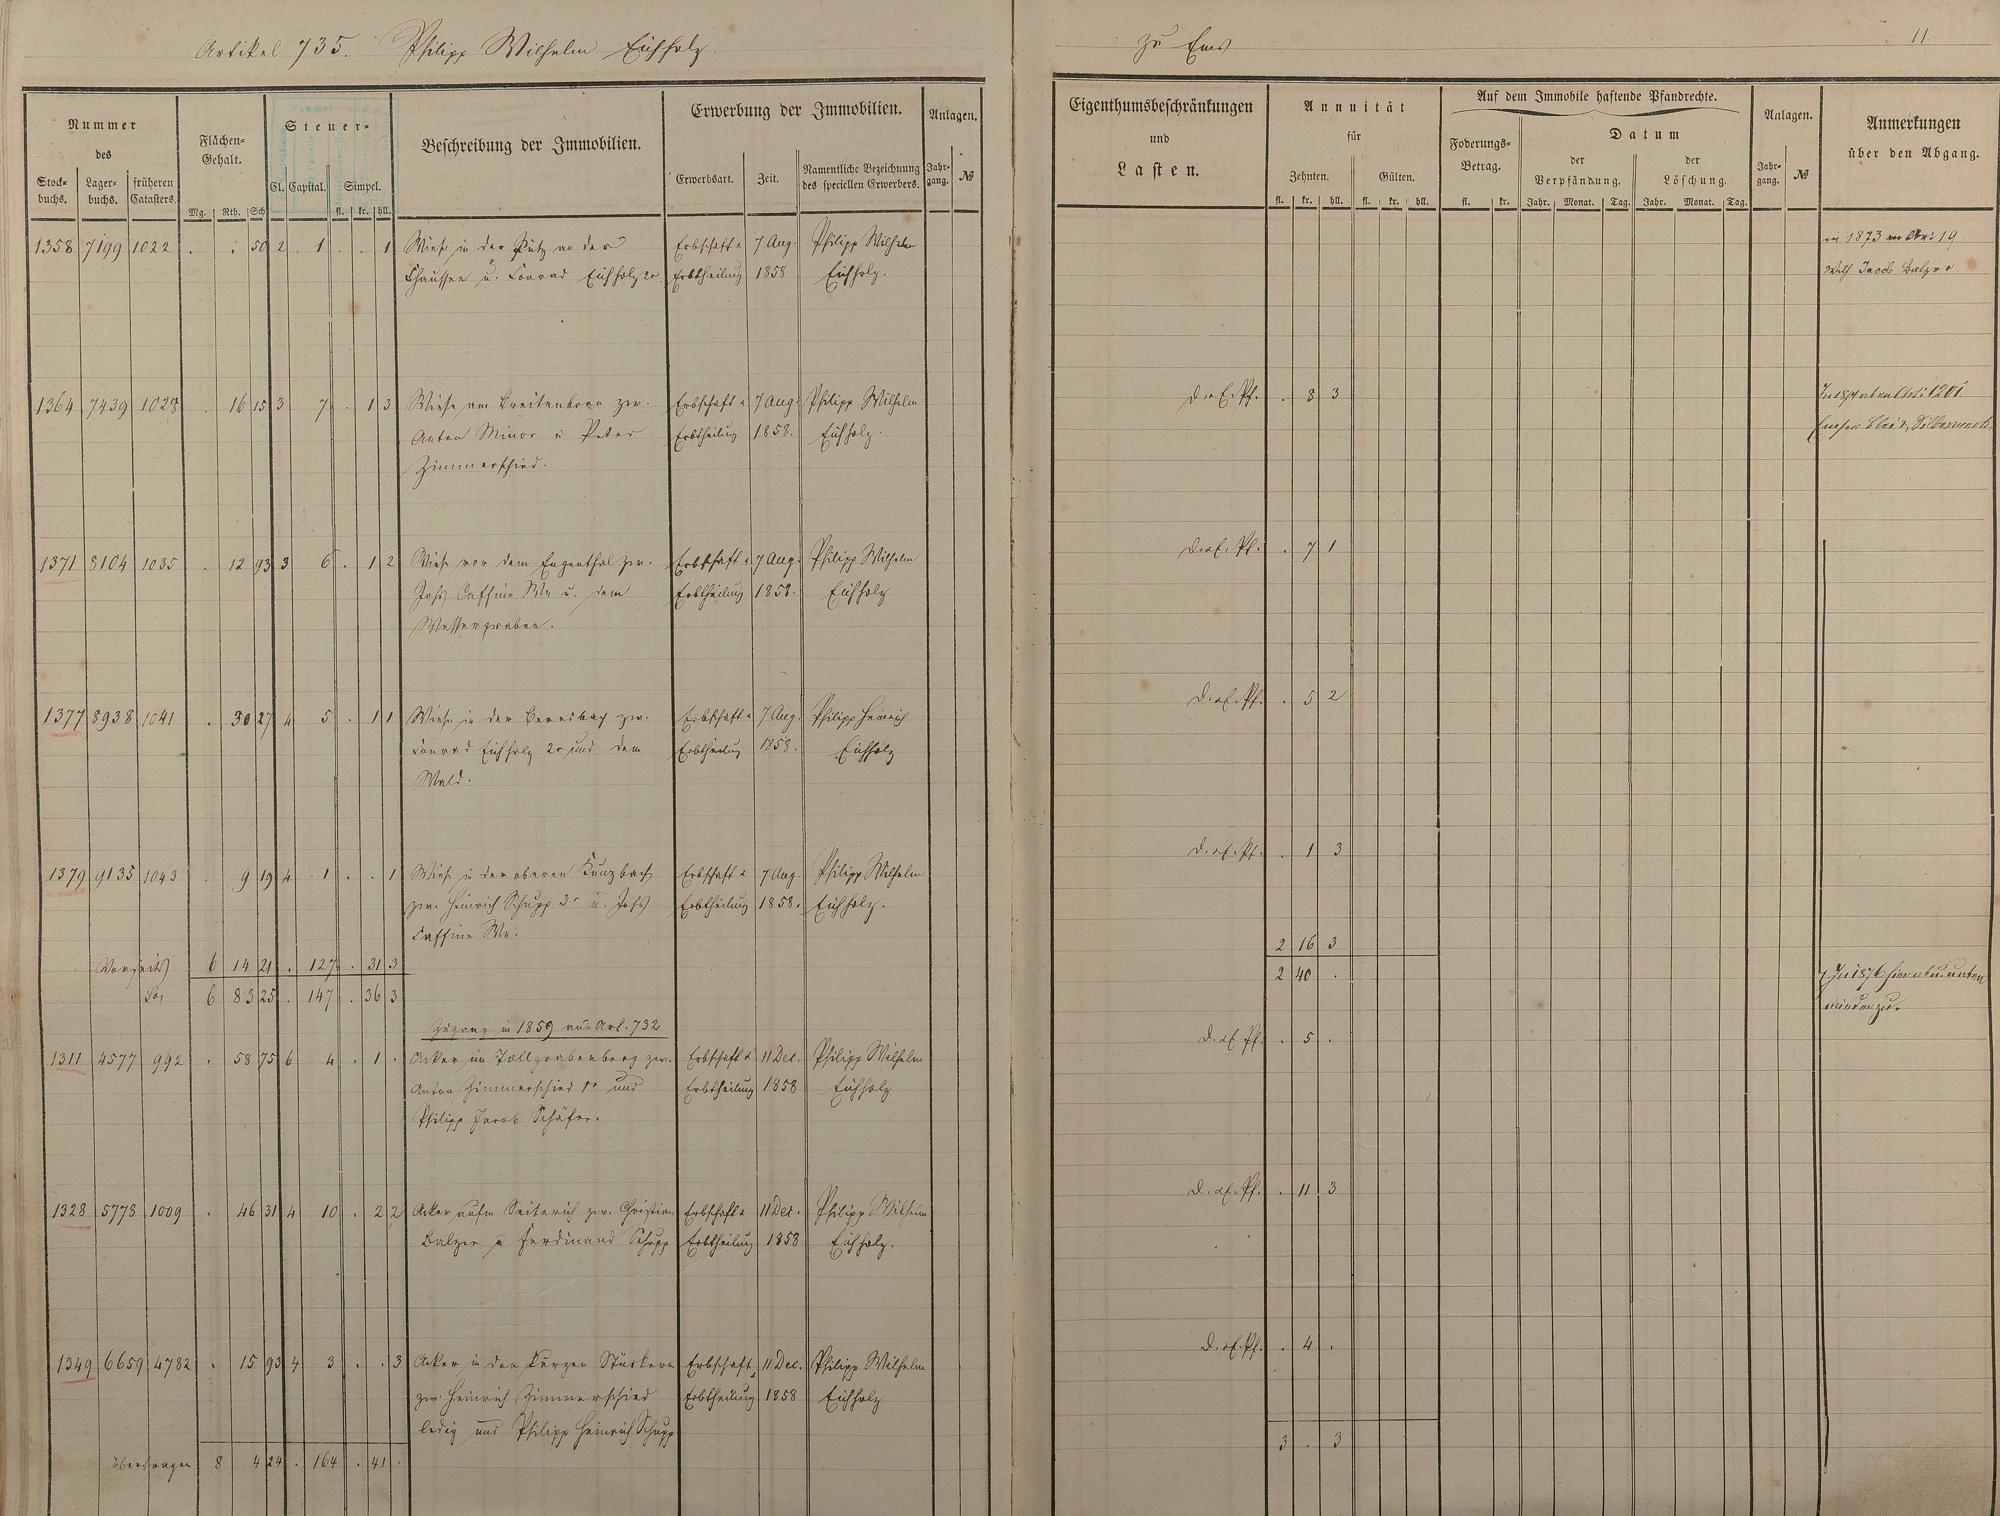 Artikel 735. Philipp Wilhelm Eichholz
zu Ems
11
Nummer
des
Stock-
buchs.
Lager-
buchs.
früheren
Catasters.
Flächen-
Gehalt.
Mg. Rth. Sch
Steuer-
Cl. Capital. Simpel.
fl. kr. hll.
Beschreibung der Immobilien.
Erwerbung der Immobilien.
Erwerbsart.
Zeit.
Namentliche Bezeichnung
des speciellen Erwerbers.
Anlagen.
Jahr-
gang.
№
Eigenthumsbeschränkungen
und
Lasten.
Annuität
für
Zehnten.
Gülten.
fl. kr. hll. fl. kr. hll.
Auf dem Immobile haftende Pfandrechte.
Foderungs-
Betrag.
fl. kr.
Datum
der
Verpfändung.
der
Löschung.
Jahr. Monat. Tag. Jahr. Monat. Tag.
Anlagen.
Jahr-
gang.
№
Anmerkungen
über den Abgang.
1358 7199 1022 . . 50 2 1 . . 1 Wiese in der Pütz an der Erbschaft u. 7 Aug. Philipp Wilhelm
Chaussee u. Conrad Eichholz 2r. Erbtheilung 1858 Eichholz.
in 1873 Art 19
Jacob Balzer
1364 7439 1028 . 16 15 3 7 . 1 3 Wiese am Breitenborn zw. Erbschaft u. 7 Aug. Philipp Wilhelm . 8 3
Anton Minor u Peter Erbtheilung 1858. Eichholz.
Zimmerschied.
Emser Blei & Silberwerk
1371 8104 1035 . 12 93 3 6 . 1 2 Wiese vor dem Engenthal zw. Erbschaft u. 7 Aug. Philipp Wilhelm . 7 1
Johs Caffine We u. dem Erbtheilung 1858. Eichholz
Wassergraben.
1377 8938 1041 . 30 27 4 5 . 1 1 Wiese in der Beersbach zw. Erbschaft u. 7 Aug. Philipp Heinrich . 5 2
Conrad Eichholz 2r und dem Erbtheilung 1858. Eichholz
Wald.
1379 9135 1043 . 9 19 4 1 . . 1 Wiese in der oberen Kunzbach Erbschaft u. 7 Aug. Philipp Wilhelm . 1 3
zw. Heinrich Schupp 3r u. Johs Erbtheilung 1858. Eichholz.
Caffine We.
Vorseits 6 14 21 . 127 . 31 3
2 16 3
6 83 25 . 147 . 36 3
2 40 .
Zugang in 1859 aus Art. 732
1311 4577 992 . 58 75 6 4 . 1 . Acker im Tollgrabenberg zw. Erbschaft u 11 Dec. Philipp Wilhelm . 5 .
Anton Zimmerschied 1r und Erbtheilung 1858 Eichholz
Philipp Jacob Schäfer.
1328 5773 1009 . 46 31 4 10 . 2 2 Acker aufm Seiterich zw. Christian Erbschaft u 11 Dec. Philipp Wilhelm . 11 3
Balzer u Ferdinand Schupp Erbtheilung 1858 Eichholz.
1349 6659 4782 . 15 93 4 3 . . 3 Acker in den kurzen Stückern Erbschaft u 11 Dec. Philipp Wilhelm . 4 .
zw. Heinrich Zimmerschied Erbtheilung 1858 Eichholz
ledig und Philipp Heinrich Schupp
übertragen 8 4 24 . 164 . 41 .
3 . 3